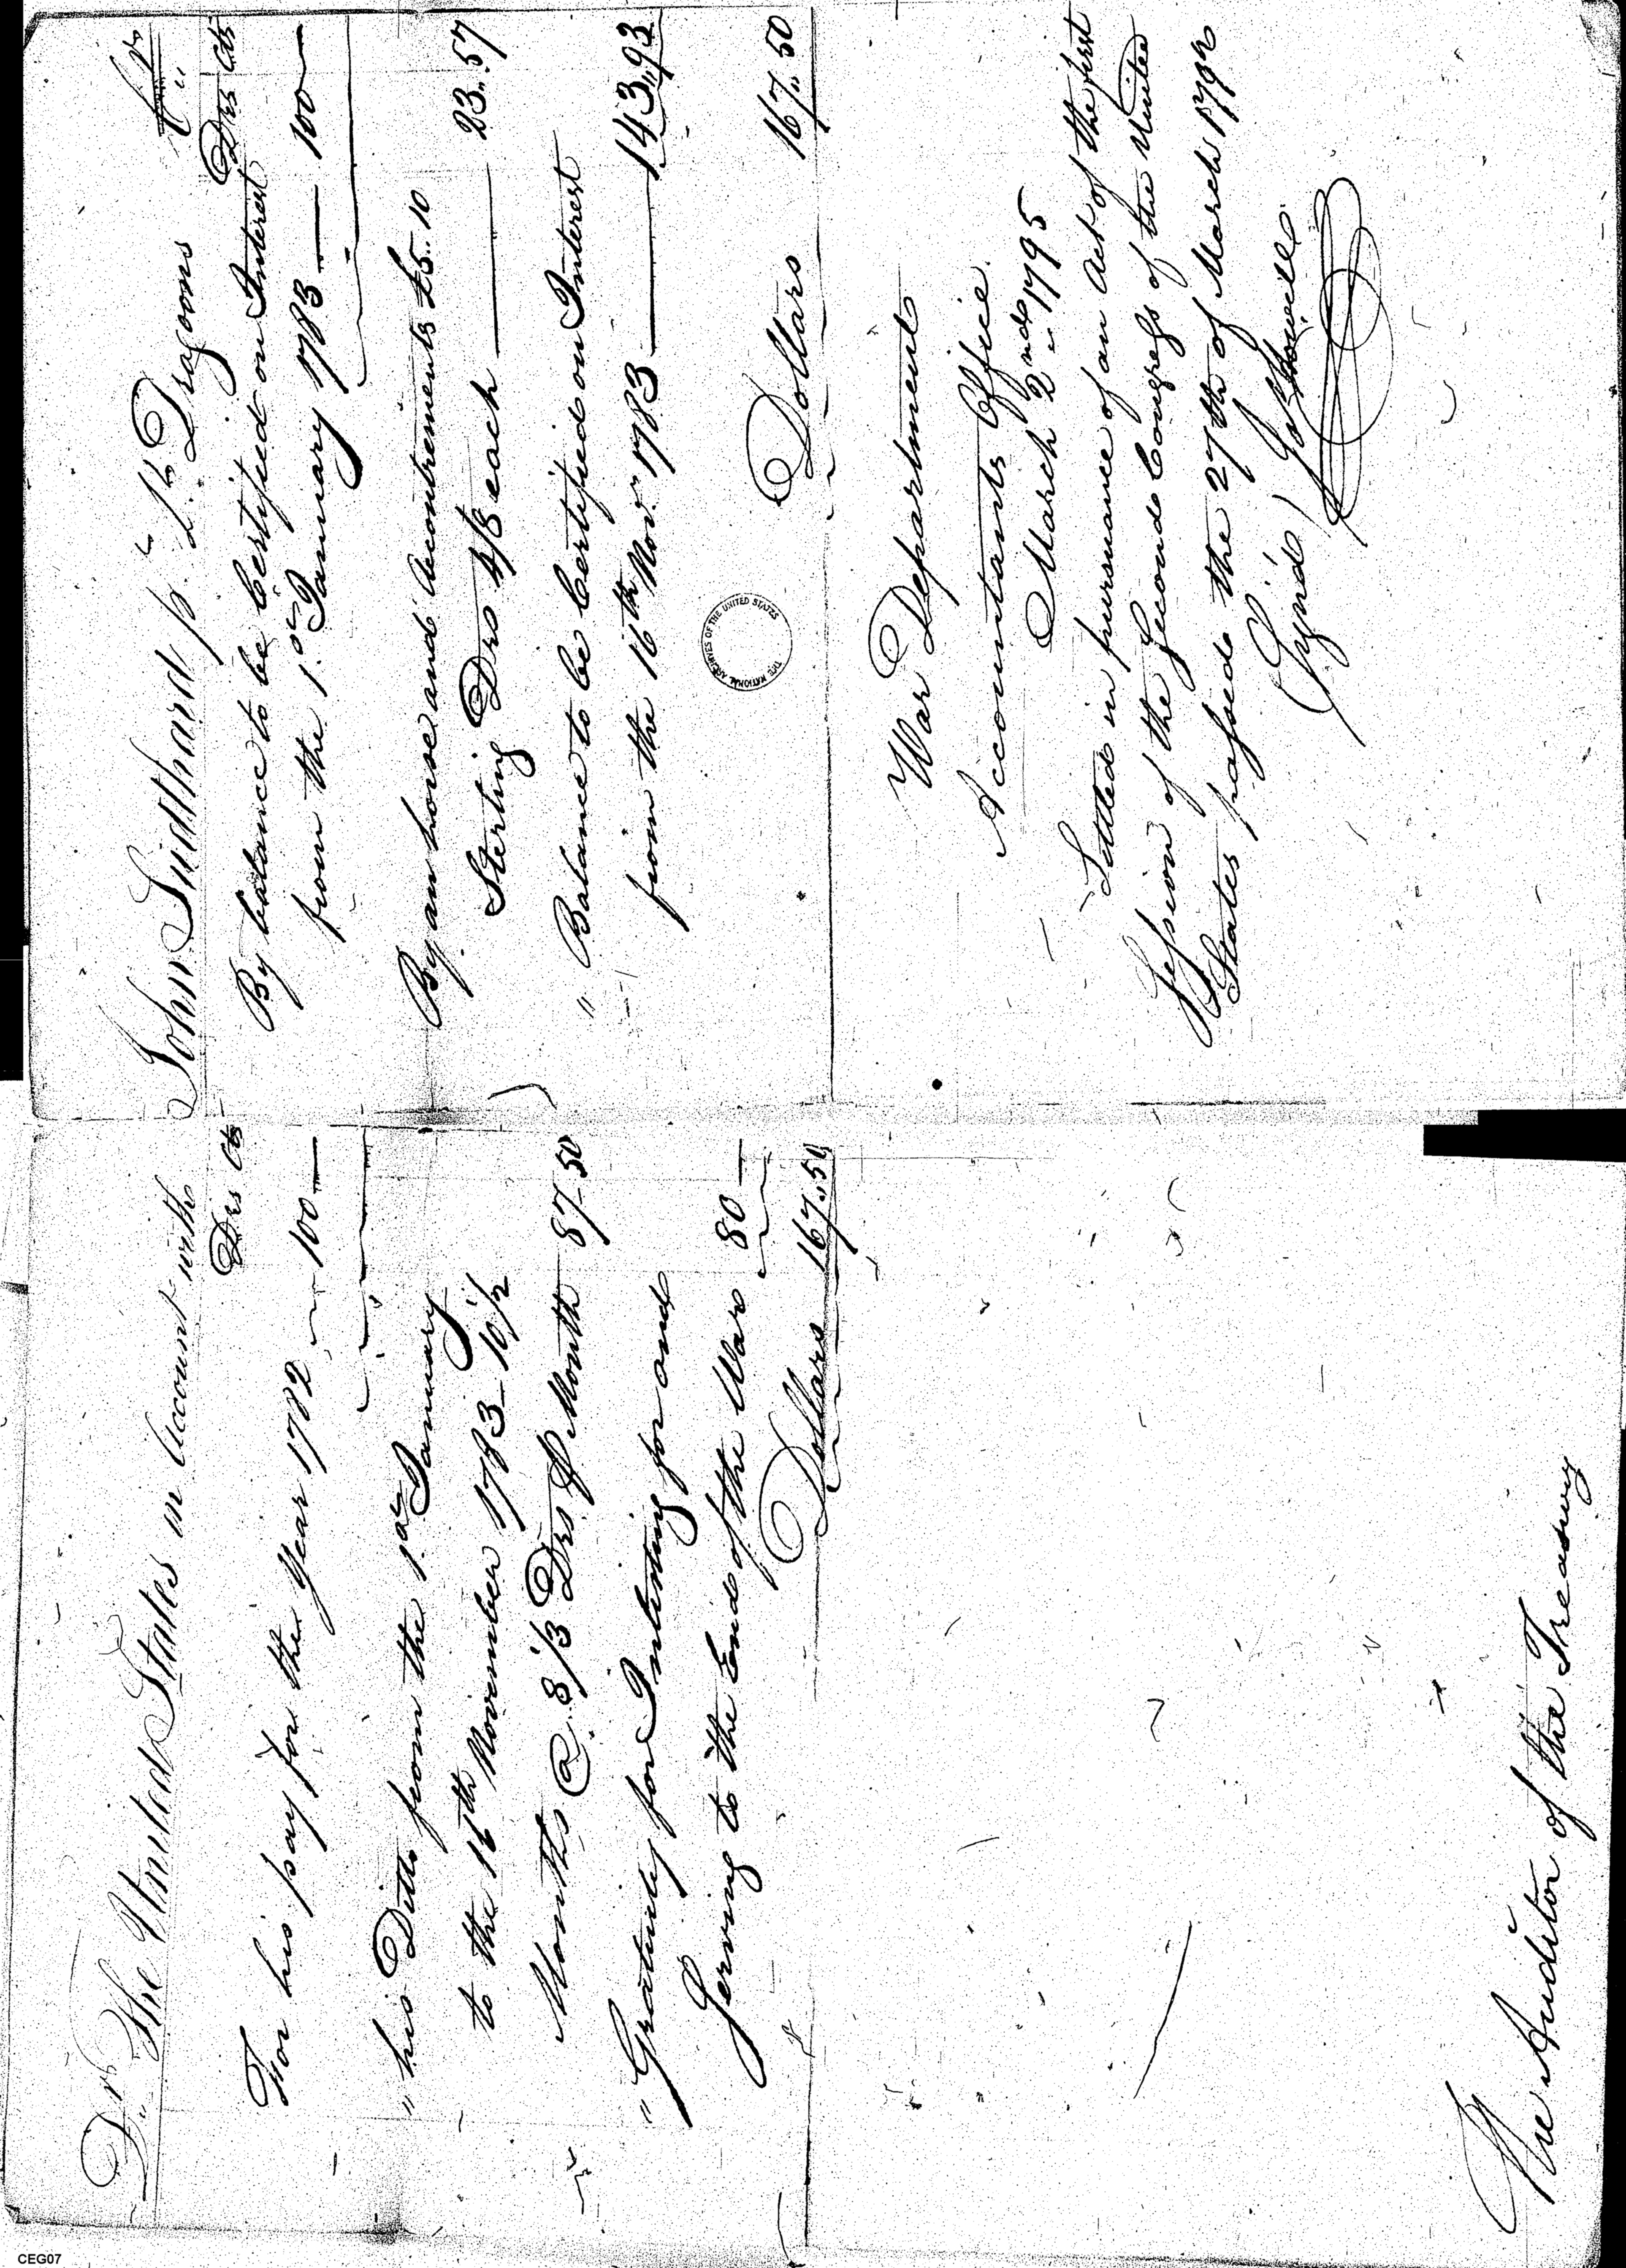 Dr. The United States in Account with
Drs Cts
For his pay for the Year 1782 100
" his Ditto from the 1st January
to the 16th November 1783 10 1/2
Months @ 8 1/3 Drs ℔ Month 87.50
" Gratuity for Inlisting for and
Serving to the End of the War 80
Dollars 167..50
The Auditor of the Treasury
John Sudthard p. Lt. Dragoons Cr.
Drs Cts
By balance to be Certified on Interest
from the 1st January 1783 100
By an horse and Accoutrements £5..10
Sterling Drs 4/8 each 23..57
" Balance to be Certified on Interest
from the 16th Novr. 1783 143..93
Dollars 167..50
THE NATIONAL ARCHIVES OF THE UNITED STATES
War Department
Accountants Office
March 2nd 1795
Settled in pursuance of an Act of the first
Session of the Second Congress of the United
States passed the 27th of March 1792
Sign'd Jos Howell
CEG07